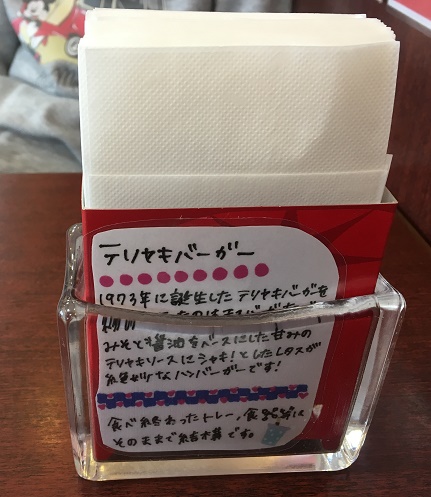 テリヤキバーガー
1973年に誕生したテリヤキバーガーを
みそと醤油をベースにした甘みの
テリヤキソースにシャキ!としたレタスが
絶妙なハンバーガーです!
食べ終わったトレー、食器は
そのままで結構です。